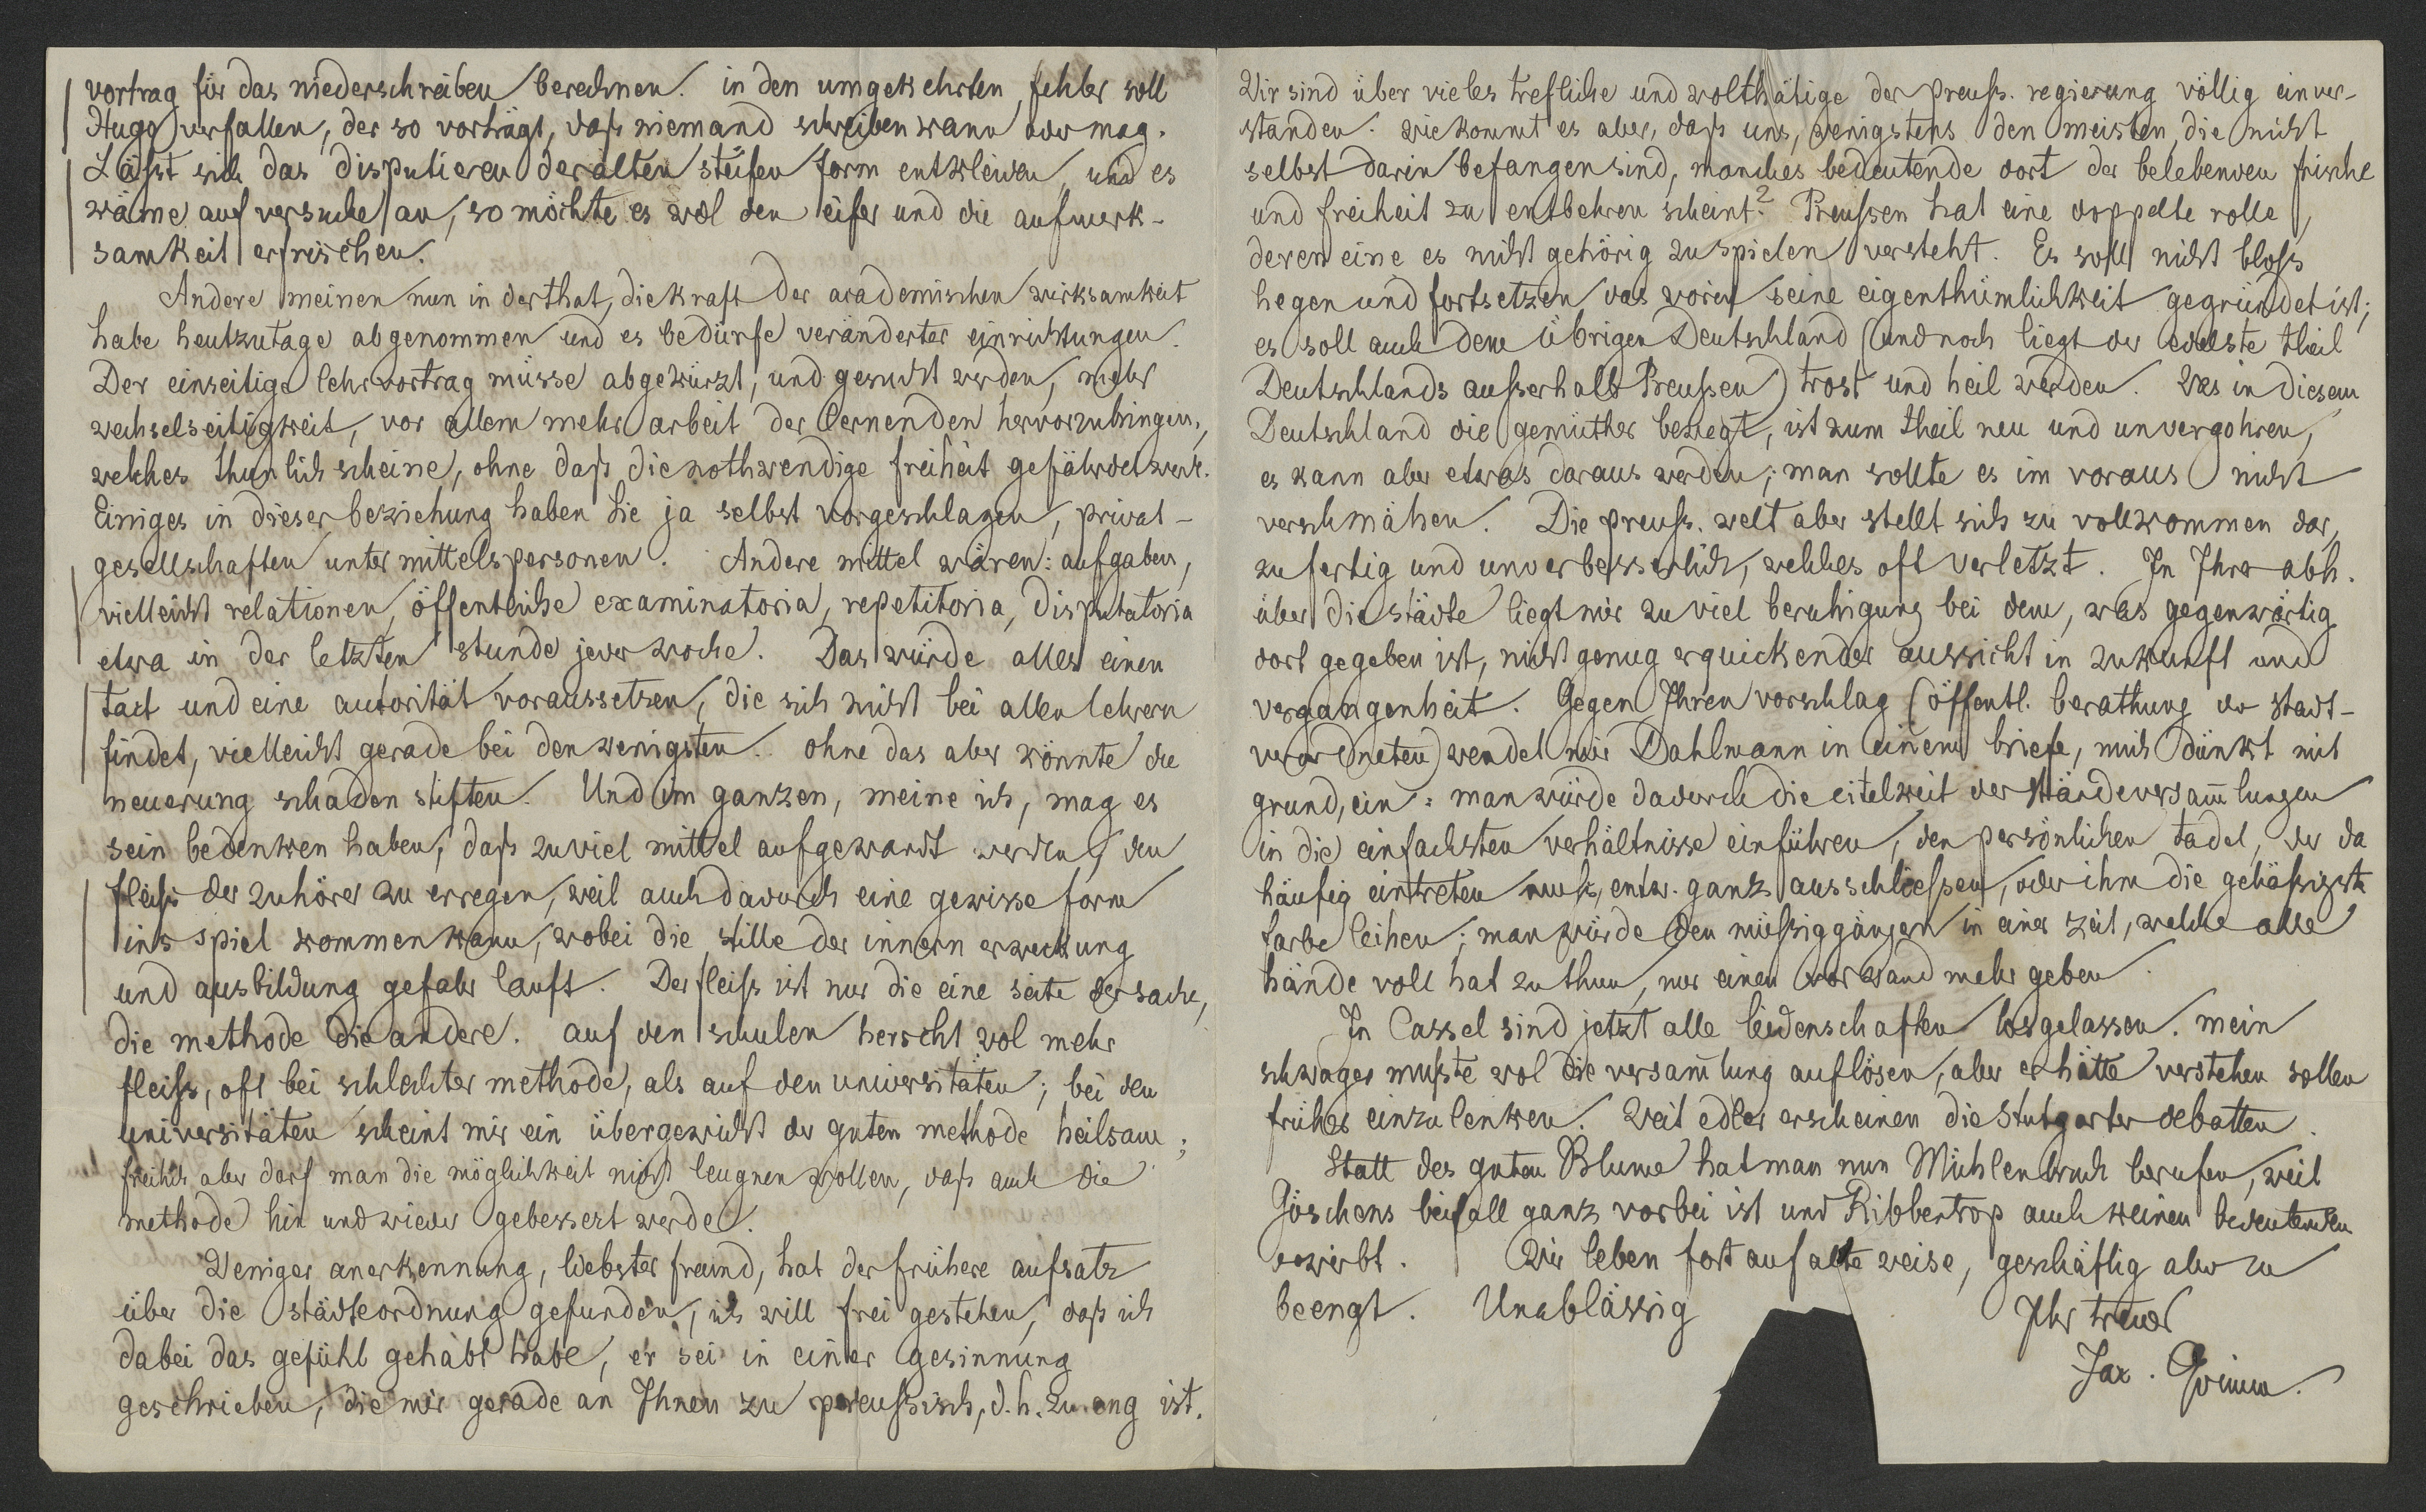 vortrag für das niederschreiben berechnen. in den umgekehrten fehler soll
Hugo verfallen, der so vorträgt, daß niemand schreiben kann oder mag.
Läßt sich das disputieren der alten steifen form entkleiden, und es
käme auf versuche an, so möchte es wol den eifer und die aufmerk-
samkeit erfrischen.
Andere meinen nun in der that, die kraft der academischen wirksamkeit
habe heutzutage abgenommen und es bedürfe veränderter einrichtungen.
Der einseitige lehrvortrag müsse abgekürzt, und gesucht werden, mehr
wechselseitigkeit, vor allem mehr arbeit der lernenden hervorzubringen,
welches thunlich scheine, ohne daß die nothwendige freiheit gefährdet werde.
Einiges in dieser beziehung haben Sie ja selbst vorgeschlagen, privat-
gesellschaften unter mittelspersonen. Andere mittel wären: aufgaben,
vielleicht relationen, öffentliche examinatoria, repetitoria, disputatoria
etwa in der letzten stunde jeder woche. Das würde alles einen
tact und eine autorität voraussetzen, die sich nicht bei allen lehrern
findet, vielleicht gerade bei den wenigsten. ohne das aber könnte die
neuerung schaden stiften. Und im ganzen, meine ich, mag es
sein bedenken haben, daß zuviel mittel aufgewandt werden, den
fleiß der zuhörer zu erregen, weil auch dadurch eine gewisse form
ins spiel kommen kann, wobei die stille der innern erweckung
und ausbildung gefahr lauft. Der fleiß ist nur die eine seite der sache,
die methode die andere. auf den schulen herscht wol mehr
fleiß, oft bei schlechter methode, als auf den universitäten; bei den
universitäten scheint mir ein übergewicht der guten methode heilsam;
freilich aber darf man die möglichkeit nicht leugnen wollen, daß auch die
methode hin und wieder gebessert werde.
Weniger anerkennung, liebster freund, hat der frühere aufsatz
über die städteordnung gefunden, ich will frei gestehen, daß ich
dabei das gefühl gehabt habe, er sei in einer gesinnung
geschrieben, die mir gerade an Ihnen zu preußisch, d. h. zu eng ist.
Wir sind über vieles trefliche und wolthätige der preuß. regierung völlig einver-
standen. wie kommt es aber, daß uns, wenigstens den meisten, die nicht
selbst darin befangen sind, manches bedeutende dort der belebenden frische
und freiheit zu entbehren scheint? Preußen hat eine doppelte rolle,
deren eine es nicht gehörig zu spielen versteht. Es soll nicht bloß
hegen und fortsetzen das worin seine eigenthümlichkeit gegründet ist;
es soll auch dem übrigen Deutschland (und noch liegt der edelste theil
Deutschlands außerhalb Preußen) trost und heil werden. Was in diesem
Deutschland die gemüther bewegt, ist zum theil neu und unvergohren,
es kann aber etwas daraus werden; man sollte es im voraus nicht
verschmähen. Die preuß. welt aber stellt sich zu vollkommen dar,
zu fertig und unverbesserlich, welches oft verletzt. In Ihrer abh.
über die städte liegt mir zu viel beruhigung bei dem, was gegenwärtig
dort gegeben ist, nicht genug erquickender aussicht in zukunft und
vergangenheit. Gegen Ihren vorschlag (öffentl. berathung der stadt-
verordneten) wendet mir Dahlmann in einem briefe, mich dünkt mit
grund, ein: man würde dadurch die eitelkeit der ständeversam̄lungen
in die einfachsten verhältnisse einführen, den persönlichen tadel, der da
häufig eintreten muß, entw. ganz ausschließen, oder ihm die gehäßigste
farbe leihen; man würde den müßiggängern in einer zeit, welche alle
hände voll hat zu thun, nur einen vorwand mehr geben.
In Cassel sind jetzt alle leidenschaften losgelassen. mein
schwager muste wol die versam̄lung auflösen, aber er hätte verstehen sollen
früher einzulenken. Weit edler erscheinen die Stutgarter debatten.
Statt des guten Blume hat man nun Mühlenbruch berufen, weil
Göschens beifall ganz vorbei ist und Ribbentrop auch keinen bedeutenden
erwirbt. Wir leben fort auf alte weise, geschäftig aber zu
beengt. Unablässig
Ihr treuer
Jac. Grimm.